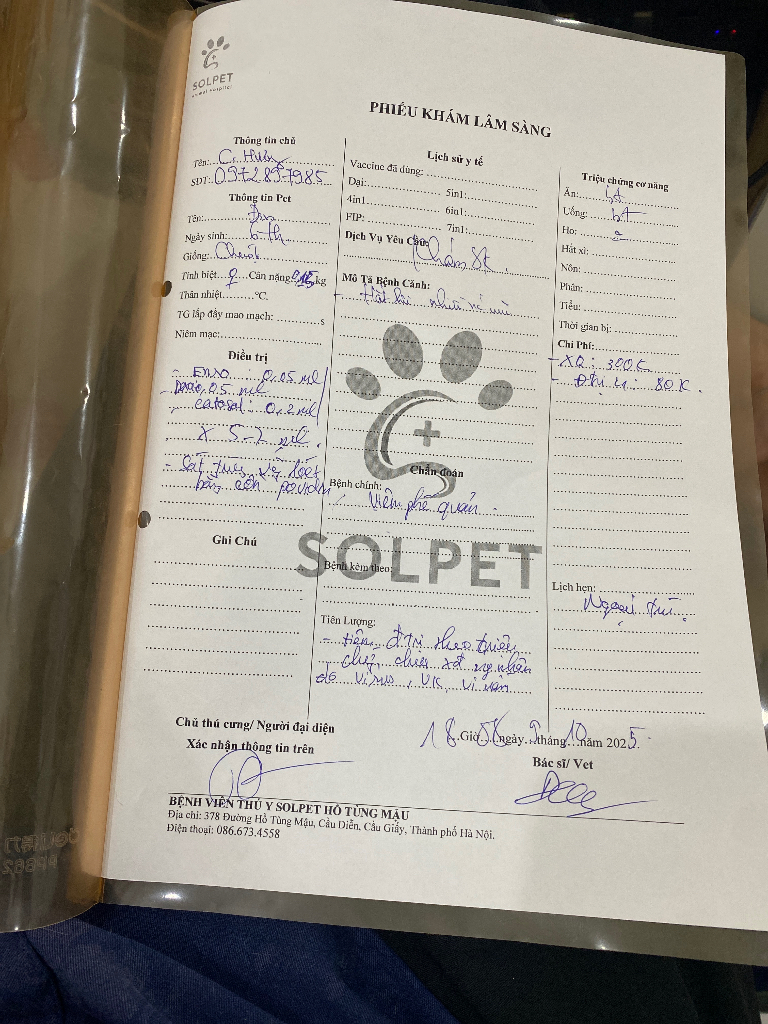 SOLPET
animal hospital
PHIẾU KHÁM LÂM SÀNG
Thông tin chủ
Tên: C. Huệ
SDT: 0972897985
Thông tin Pet
Tên:
Ngày sinh: 6 th
Giống: Chuột
Tính biệt ♀ Cân nặng kg
Thân nhiệt °C.
TG lấp đầy mao mạch: s
Niêm mạc:
Điều trị
- Enro 0,05 ml/
0,05 ml
catosal: 0,2 ml/
x 5-7
- Sát
bằng cồn povidin
Ghi Chú
Lịch sử y tế
Vaccine đã dùng:
Dại: 5in1:
4in1 6in1:
FIP: 7in1:
Dịch Vụ Yêu Cầu: Khám SK.
Mô Tả Bệnh Cảnh:
- Hắt hơi
Chẩn đoán
Bệnh chính:
Viêm phế quản.
SOLPET
Bệnh kèm theo:
Tiên Lượng:
- tiêm, đ trị theo triệu
chứng, chưa xđ ng nhân
do virus, VK, vi nấm
Triệu chứng cơ năng
Ăn: bt
Uống: bt
Ho:
Hắt xì:
Nôn:
Phân:
Tiểu:
Thời gian bị:
Chi Phí:
- XQ: 300K
- Đtrị: 80K.
Lịch hẹn:
Ngoại trú.
18 Giờ 56 ngày 9 tháng 10 năm 2025
Chủ thú cưng/ Người đại diện
Xác nhận thông tin trên
Bác sĩ/ Vet
BỆNH VIỆN THÚ Y SOLPET HỒ TÙNG MẬU
Địa chỉ: 378 Đường Hồ Tùng Mậu, Cầu Diễn, Cầu Giấy, Thành phố Hà Nội.
Điện thoại: 086.673.4558